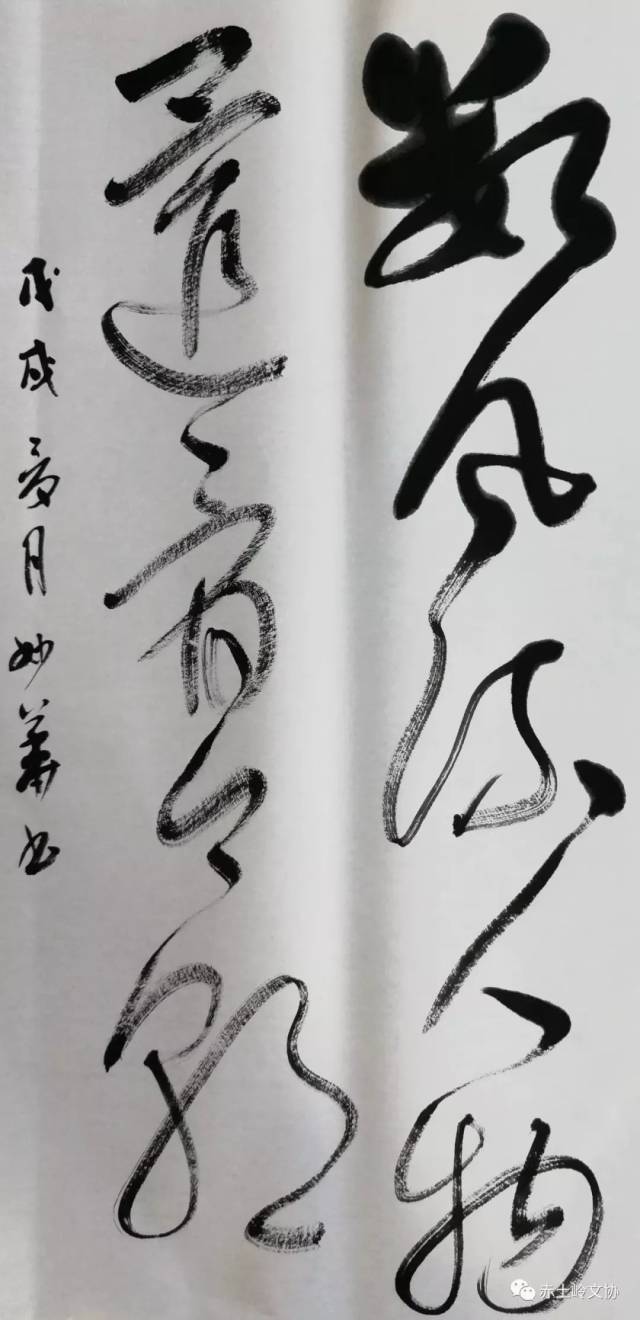 数风流人物
还看今朝
戊戌 月 妙华书
赤土岭文协